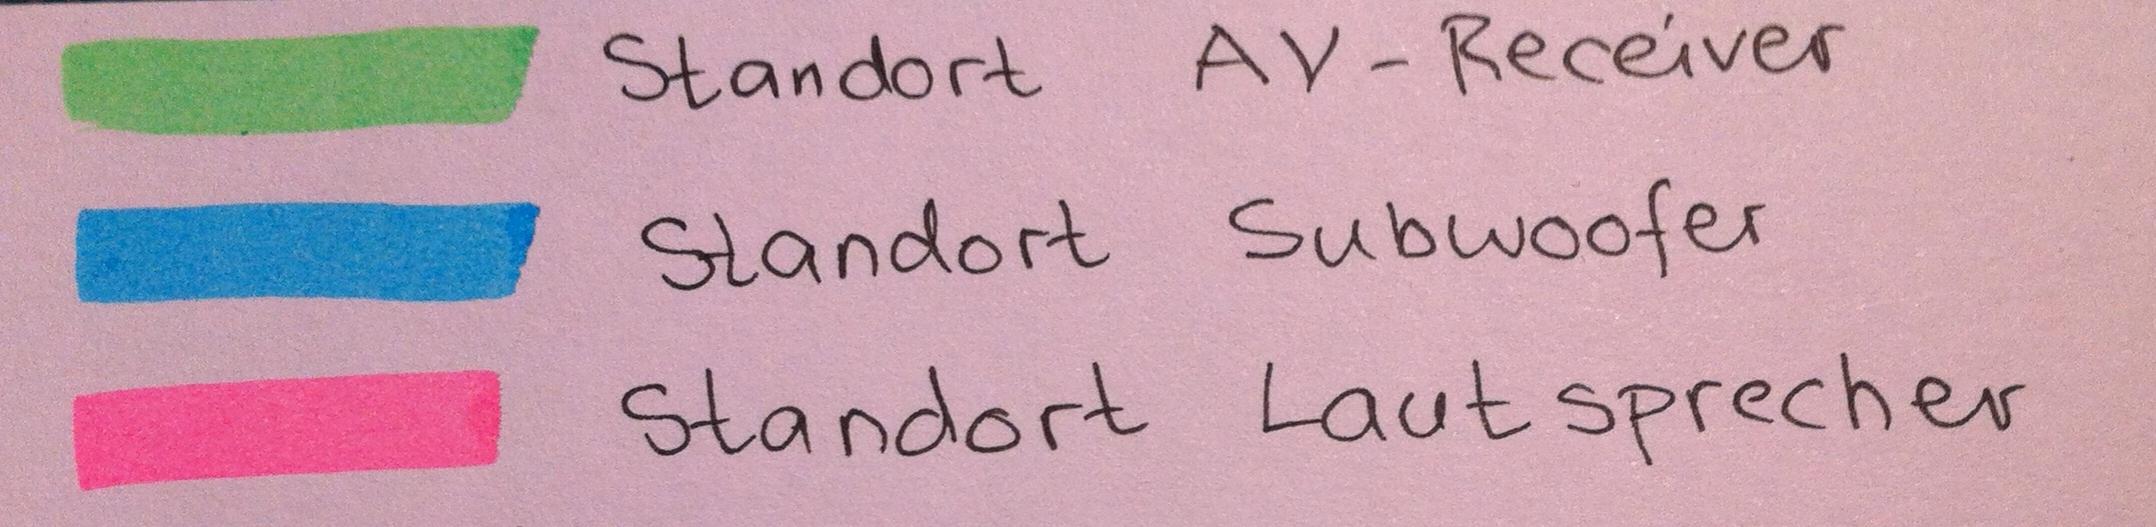 Standort AV-Receiver
Standort Subwoofer
Standort Lautsprecher